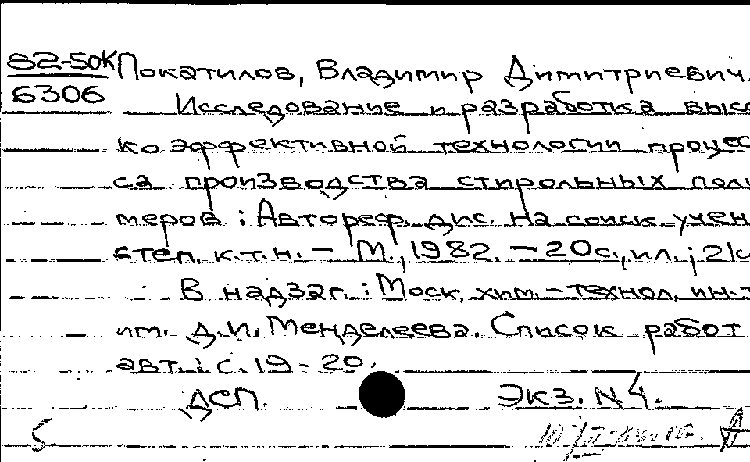 82-50к
6306
Покатилов, Владимир Димитриевич.
Исследование и разработка высо
ко эффективной технологии процес
са производства стирольных поли
меров : Автореф. дис. на соиск. учен
степ. к.т.н. – М., 1982. – 20 с., ил. ; 21 с
В надзаг. : Моск. хим.-технол. ин-т
им. Д.И. Менделеева. Список работ
авт. : с. 19 - 20.
ДСП. Экз. N 4.
5